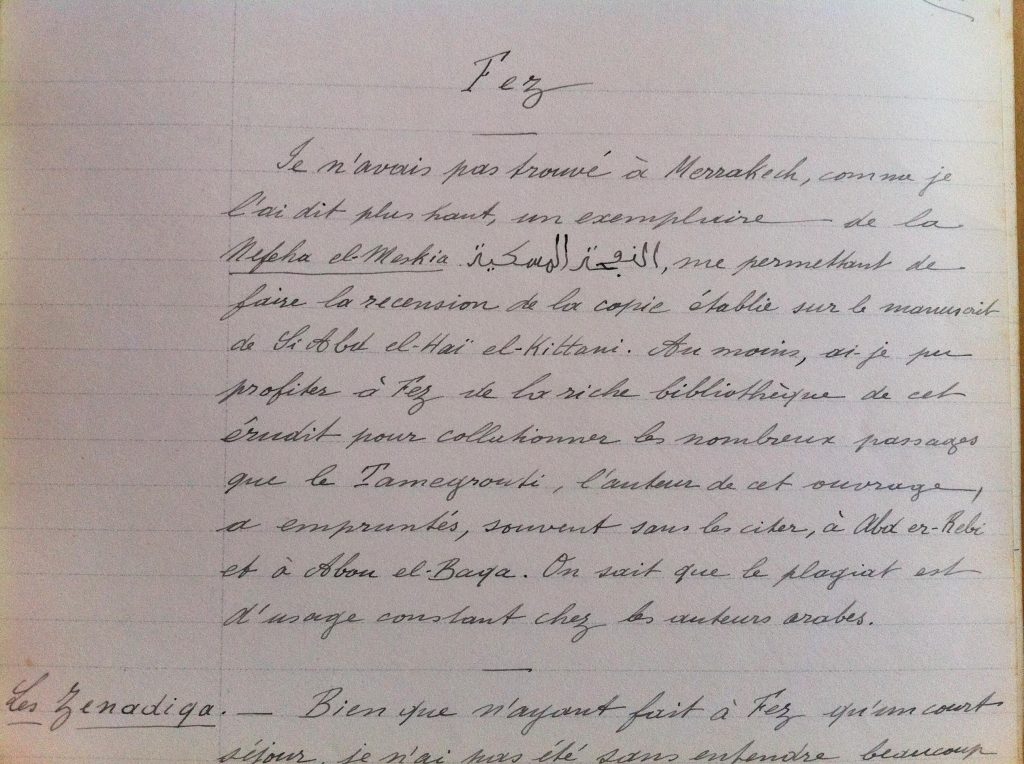 Fez
Je n'avais pas trouvé à Merrakech, comme je
l'ai dit plus haut, un exemplaire de la
Nefcha el-Meskia النفحة المسكية, me permettant de
faire la recension de la copie établie sur le manuscrit
de Si Abd el-Haï el-Kittani. Au moins, ai-je pu
profiter à Fez de la riche bibliothèque de cet
érudit pour collationner les nombreux passages
que le Tamegrouti, l'auteur de cet ouvrage,
a empruntés, souvent sans les citer, à Abd er-Rebi
et à Abou el-Baqa. On sait que le plagiat est
d'usage constant chez les auteurs arabes.
Les Zenadiqa. — Bien que n'ayant fait à Fez qu'un court
séjour, je n'ai pas été sans entendre beaucoup